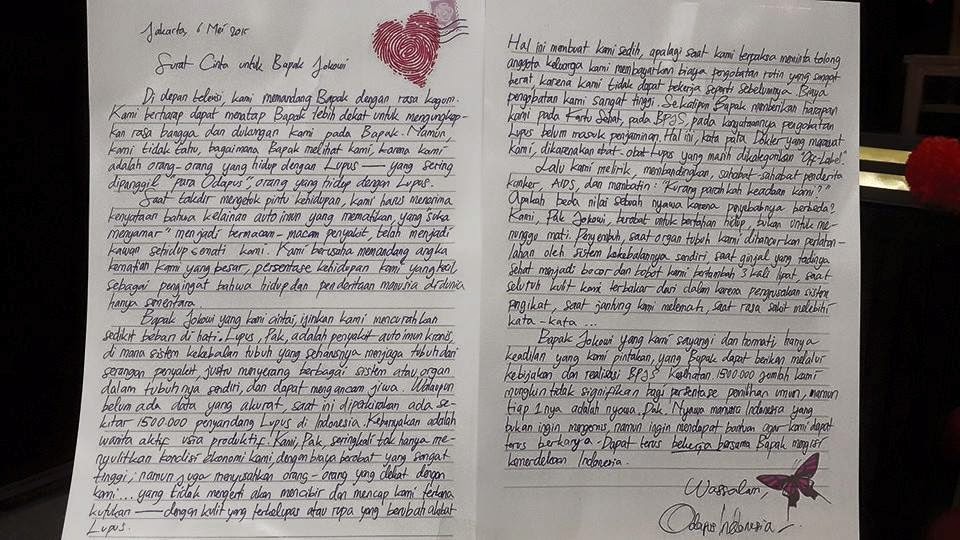 Jakarta, 6 Mei 2015
Surat Cinta untuk Bapak Jokowi
Di depan televisi, kami memandang Bapak dengan rasa kagum.
Kami berharap dapat menatap Bapak lebih dekat untuk mengungkap-
kan rasa bangga dan dukungan kami pada Bapak. Namun,
kami tidak tahu, bagaimana Bapak melihat kami, karena kami
adalah orang-orang yang hidup dengan Lupus — yang sering
dipanggil "para Odapus", orang yang hidup dengan Lupus.
Saat takdir mengetok pintu kehidupan, kami harus menerima
kenyataan bahwa kelainan autoimun yang mematikan, yang suka
menyamar" menjadi bermacam-macam penyakit, telah menjadi
kawan sehidup semati kami. Kami berusaha memandang angka
kematian kami yang besar, persentase kehidupan kami yang kecil,
sebagai pengingat bahwa hidup dan penderitaan manusia di dunia
hanya sementara.
Bapak Jokowi yang kami cintai, ijinkan kami mencurahkan
sedikit beban di hati. Lupus, Pak, adalah penyakit autoimun kronis,
di mana sistem kekebalan tubuh yang seharusnya menjaga tubuh dari
serangan penyakit, justru menyerang berbagai sistem atau organ
dalam tubuhnya sendiri, dan dapat mengancam jiwa. Walaupun
belum ada data yang akurat, saat ini diperkirakan ada se-
kitar 1.500.000 penyandang Lupus di Indonesia. Kebanyakan adalah
wanita aktif usia produktif. Kami, Pak, seringkali tak hanya me-
nyulitkan kondisi ekonomi kami, dengan biaya berobat yang sangat
tinggi; namun juga menyusahkan orang-orang yang dekat dengan
kami... yang tidak mengerti akan mencibir dan mencap kami terkena
kutukan — dengan kulit yang terkelupas atau rupa yang berubah akibat
Lupus.
Hal ini membuat kami sedih, apalagi saat kami terpaksa meminta tolong
anggota keluarga kami membayarkan biaya pengobatan rutin yang sangat
berat, karena kami tidak dapat bekerja seperti sebelumnya. Biaya
pengobatan kami sangat tinggi. Sekalipun Bapak memberikan harapan
kami pada Kartu Sehat, pada BPJS, pada kenyataannya pengobatan
Lupus belum masuk penjaminan. Hal ini, kata para Dokter yang merawat
kami, dikarenakan obat-obat Lupus yang masih dikategorikan "Off-Label".
Lalu kami melirik, membandingkan, sahabat-sahabat penderita
kanker, AIDS, dan membatin: "Kurang parahkah keadaan kami?"
Apakah beda nilai sebuah nyawa karena penyebabnya berbeda?
Kami, Pak Jokowi, berobat untuk bertahan hidup, bukan untuk me-
nunggu mati. Penyembuh, saat organ tubuh kami dihancurkan perlahan-
lahan oleh sistem kekebalannya sendiri, saat ginjal yang tadinya
sehat menjadi bocor dan bobot kami bertambah 3 kali lipat, saat
seluruh kulit kami terbakar dari dalam karena pengrusakan sistem
pengikat, saat jantung kami melemah, saat rasa sakit melebihi
kata-kata...
Bapak Jokowi yang kami sayangi dan hormati, hanya
keadilan yang kami pintakan, yang Bapak dapat berikan melalui
kebijakan dan realisasi BPJS Kesehatan. 1.500.000 jumlah kami
mungkin tidak signifikan bagi persentase pemilihan umum, namun
tiap 1 nya adalah nyawa, Pak. Nyawa manusia Indonesia yang
bukan ingin mengemis, namun ingin mendapat bantuan agar kami dapat
terus berkarya. Dapat terus bekerja bersama Bapak mengisi
kemerdekaan Indonesia.
Wassalam,
Odapus Indonesia